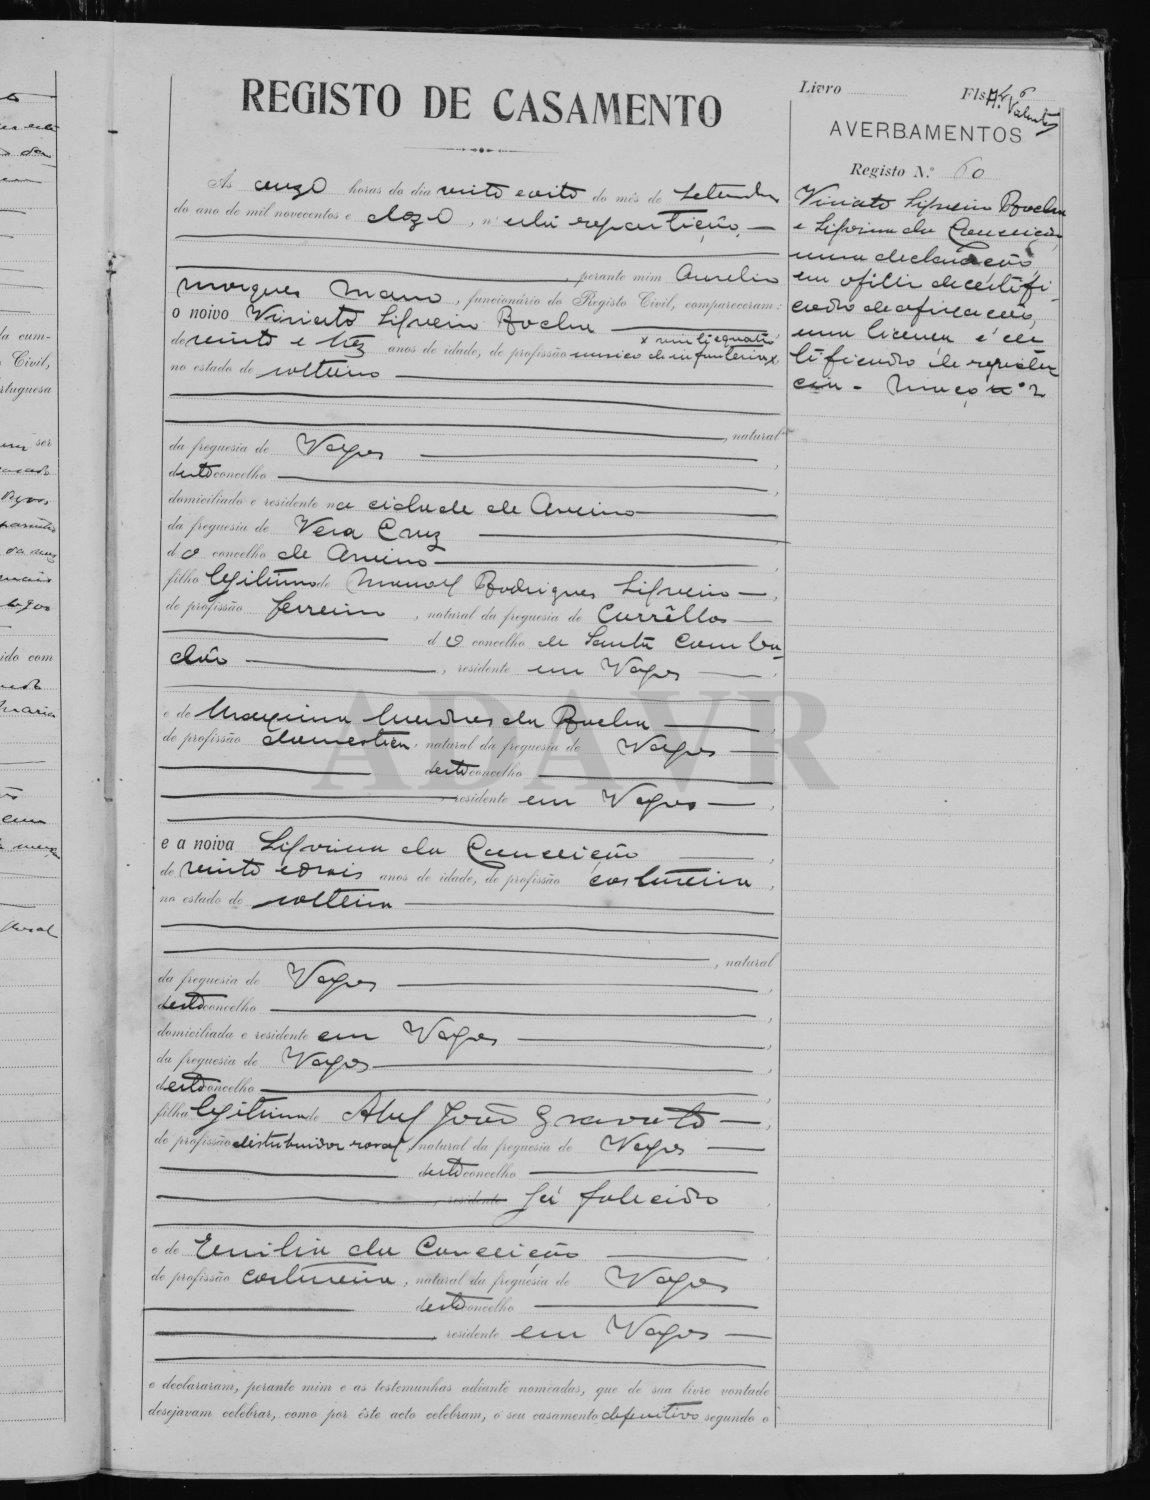 REGISTO DE CASAMENTO
Livro Fls. 46
A. Valente
AVERBAMENTOS
Registo N.º 60
Ás onze horas do dia vinte e oito do mês de Setembro
do ano de mil novecentos e doze, n'esta repartição,
perante mim Aurelio
Marques Mano, funcionário do Registo Civil, compareceram:
o noivo Viriato Silverio Rocha
de vinte e tres anos de idade, de profissão musico de infanteria x
x vinte e quatro
no estado de solteiro
, natural
da freguesia de Vagos
deste concelho
domiciliado e residente na cidade de Aveiro
da freguesia de Vera Cruz
do concelho de Aveiro
filho legitimo de Manoel Rodrigues Silverio
de profissão ferreiro, natural da freguesia de Currêllos
do concelho de Santa Comba
dão, residente em Vagos
e de Maxima Mendes da Rocha
de profissão domestica, natural da freguesia de Vagos
deste concelho
, residente em Vagos
e a noiva Silvina da Conceição
de vinte e dois anos de idade, de profissão costureira,
no estado de solteira
, natural
da freguesia de Vagos
deste concelho
domiciliada e residente em Vagos
da freguesia de Vagos
deste concelho
filha legitima de Abel João Gravato
de profissão distribuidor rural, natural da freguesia de Vagos
deste concelho
residente já falecido
e de Emilia da Conceição
de profissão costureira, natural da freguesia de Vagos
deste concelho
, residente em Vagos
e declararam, perante mim e as testemunhas adiante nomeadas, que de sua livre vontade
desejavam celebrar, como por êste acto celebram, o seu casamento definitivo segundo o
Viriato Silverio Rocha
e Silvina da Conceição
uma declaração
em ofilio de certifi-
cado de afixação,
uma licença e cer
tificado de residen
cia - Maço nº 2
ADAVR